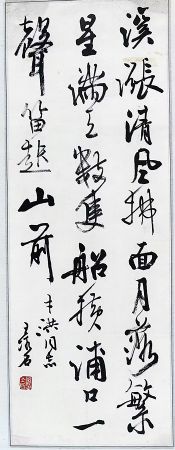 溪漲清風拂面月落繁
星滿天數隻船橫浦口一
聲笛起山前
洪同志